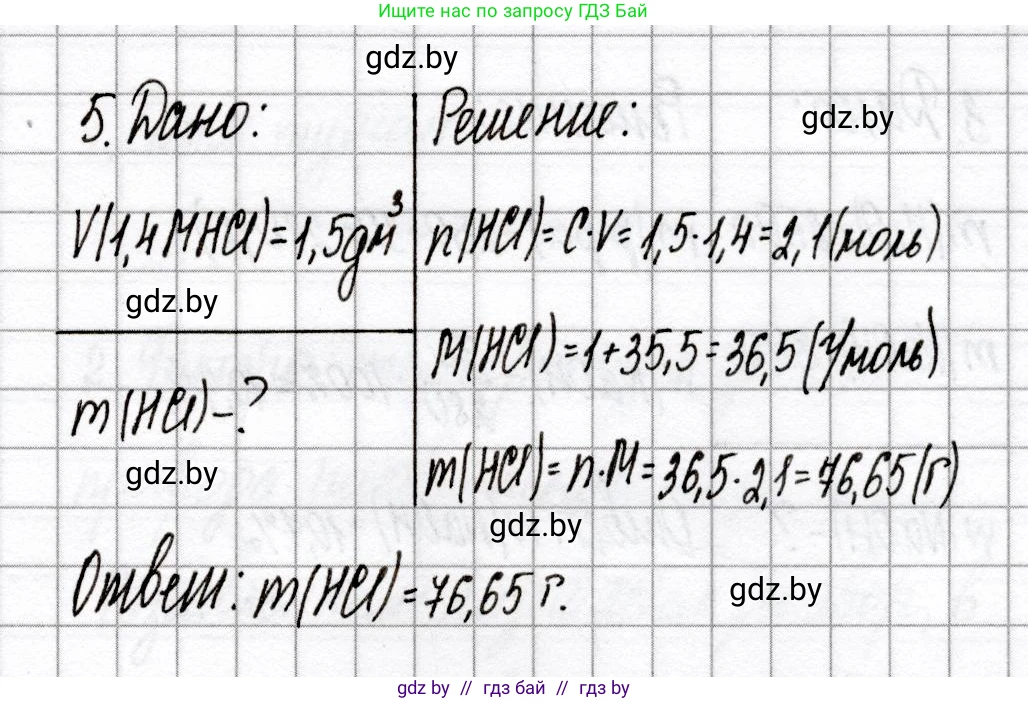 Ищите нас по запросу ГДЗ Бай
gdz.by
5. Дано:
V(1,4М HCl)=1,5дм³
gdz.by
m(HCl)-?
gdz.by
Решение:
gdz.by
n(HCl)=C·V=1,5·1,4=2,1(моль)
M(HCl)=1+35,5=36,5(г/моль)
m(HCl)=n·M=36,5·2,1=76,65(г)
gdz.by
Ответ: m(HCl)=76,65 г.
gdz.by
gdz by // гдз бай // gdz by